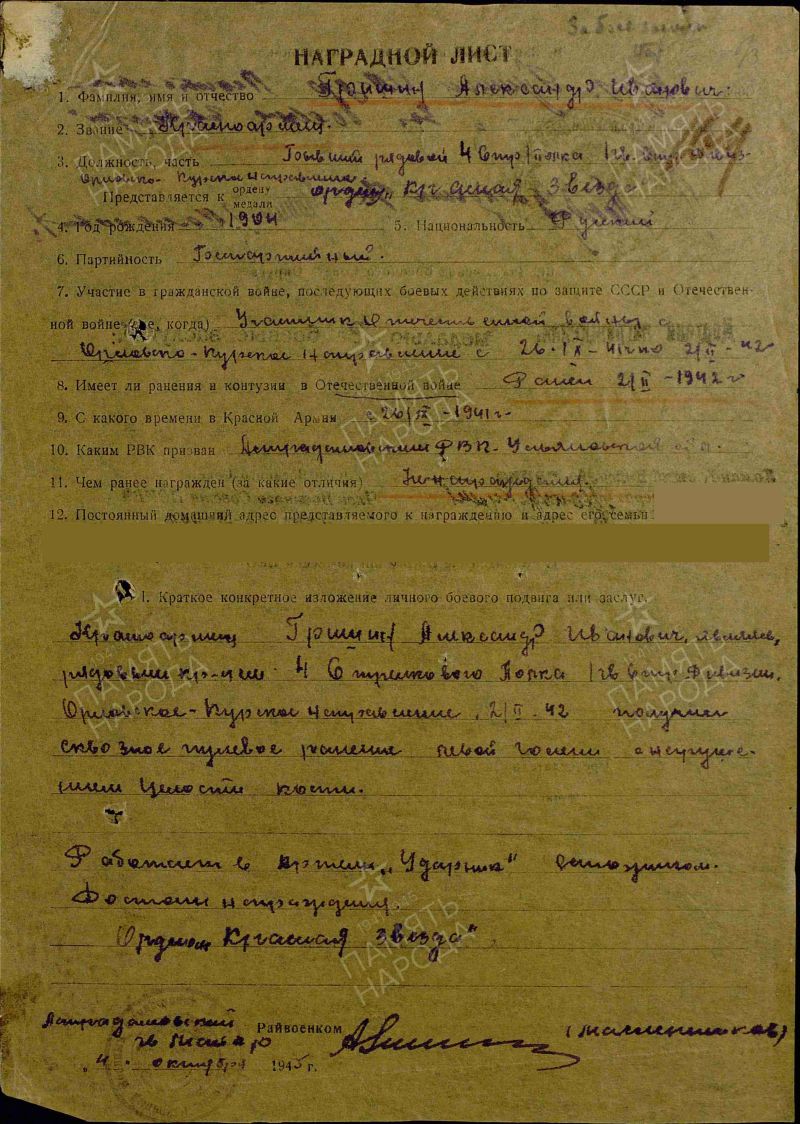 НАГРАДНОЙ ЛИСТ
1. Фамилия, имя и отчество Гришин Александр Иванович.
2. Звание Красноармеец
3. Должность, часть Бывший рядовой 4 Стр/полка 1 гв. Стр.
Орловско-Курское направление
Представляется к ордену медали ордену „Красная Звезда
4. Год рождения 1904 5. Национальность Русский
6. Партийность Беспартийный.
7. Участие в гражданской войне, последующих боевых действиях по защите СССР и Отечествен-
ной войне (где, когда) Участник Отечественной войны с
Орловско-Курское направление с 26.IX-41г по 2/II-42
8. Имеет ли ранения и контузии в Отечественной войне Ранен 2/II-1942г
9. С какого времени в Красной Армии с 26/IX-1941г.
10. Каким РВК призван РВК-Ульяновской обл.
11. Чем ранее награжден (за какие отличия) Не награждения.
12. Постоянный домашний адрес представляемого к награждению и адрес его семьи
1. Краткое конкретное изложение личного боевого подвига или заслуг.
Красноармеец Гришин Александр Иванович, являясь,
рядовым кр-цем 4 Стрелкового Полка 1 гв стр Дивизии,
Орловское-Курское направление, 2/II-42 получил
сквозное пулевое ранение левой голени с нарушe-
нием целости кости.
Работает в артели „Ударник"
Достоин награждения
Орденом „Красная звезда"
Райвоенком
гв Майор
„4" октября 1945 г.
ПАМЯТЬ НАРОДА